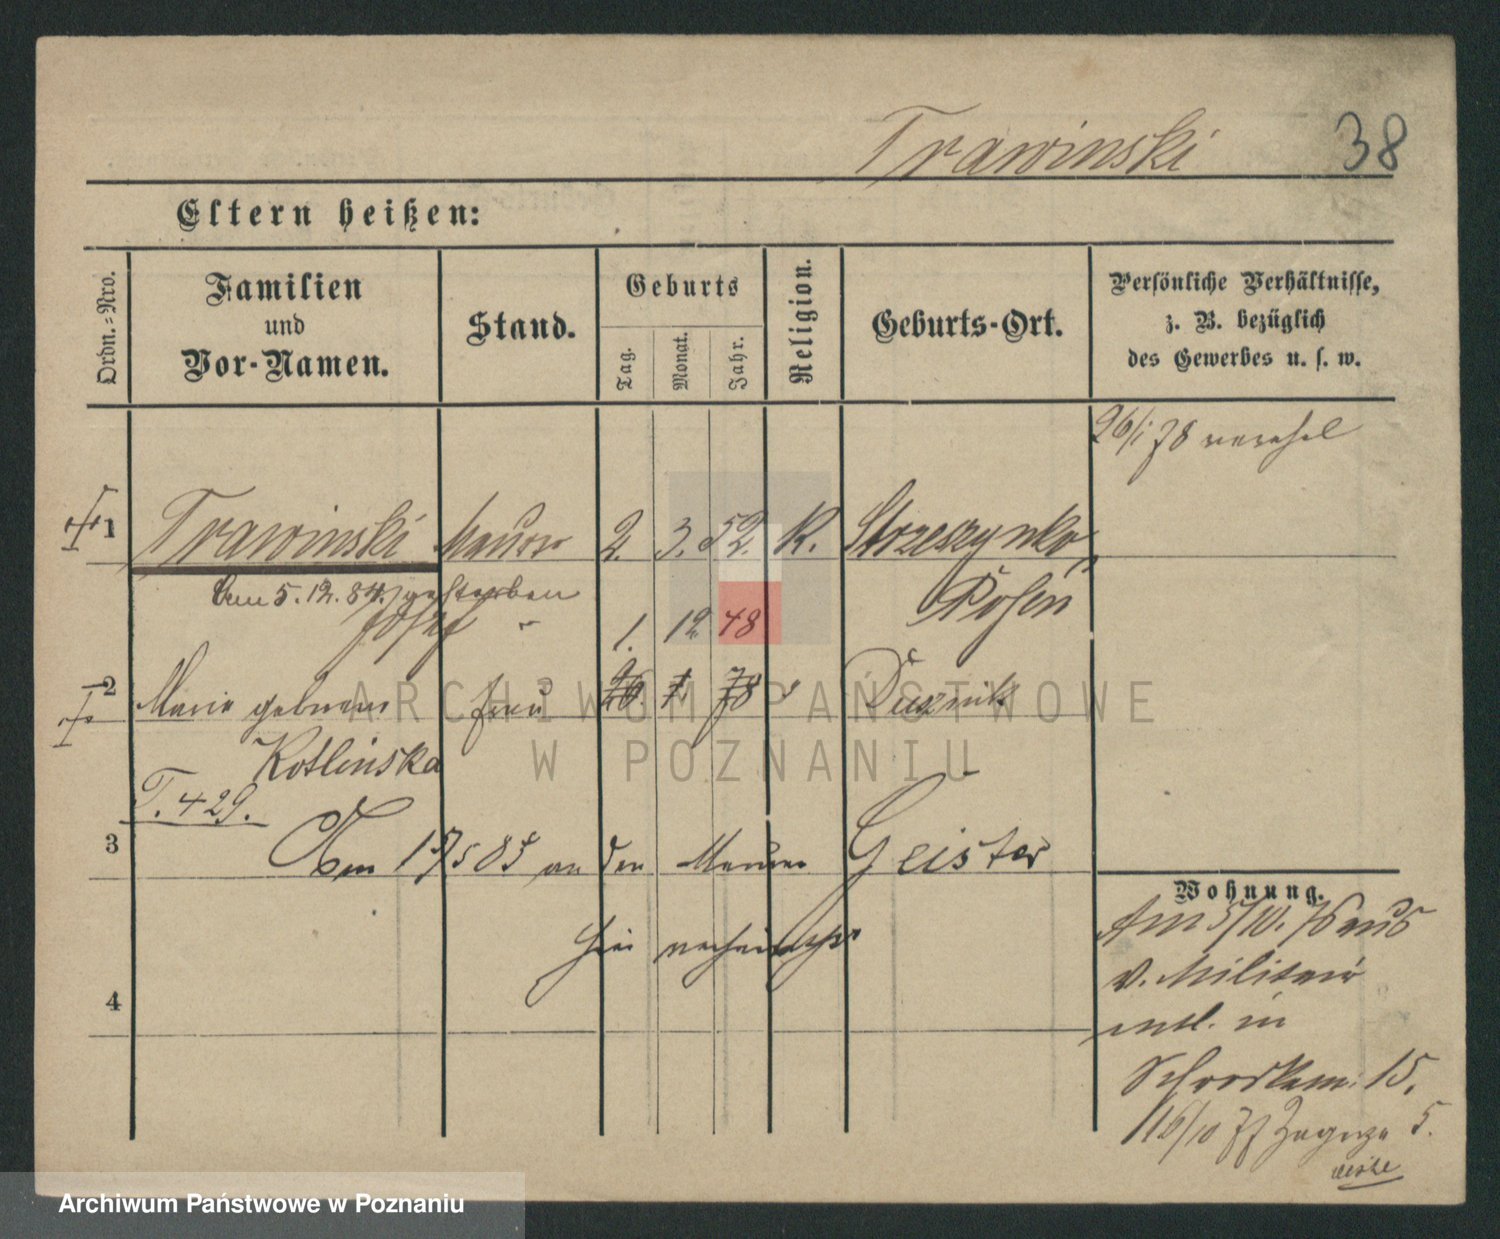 Trawinski 38
Eltern heißen:
Ordn.-Nro.
Familien
und
Vor-Namen.
Stand.
Geburts
Tag.
Monat.
Jahr.
Religion.
Geburts-Ort.
Persönliche Verhältnisse,
z. B. bezüglich
des Gewerbes u. s. w.
26/1 78 verehel
1 Trawinski Maurer 2. 3. 52. K. Strzeszynko,
Am 5.12.84. gestorben
Josef " Posen
1. 12 48
2 Marie geboren Frau 26. 1 78 " Dusznik
Kotlinska
T. 429.
3 Am 17/5 85 an den Maurer Geister
hier verheirathet
4
Wohnung.
Am 5/10. 76 aus
v. Militair
entl. in
Schrodkam: 15.
116/10 77 Zagorze 5.
ARCHIWUM PAŃSTWOWE
W POZNANIU
Archiwum Państwowe w Poznaniu